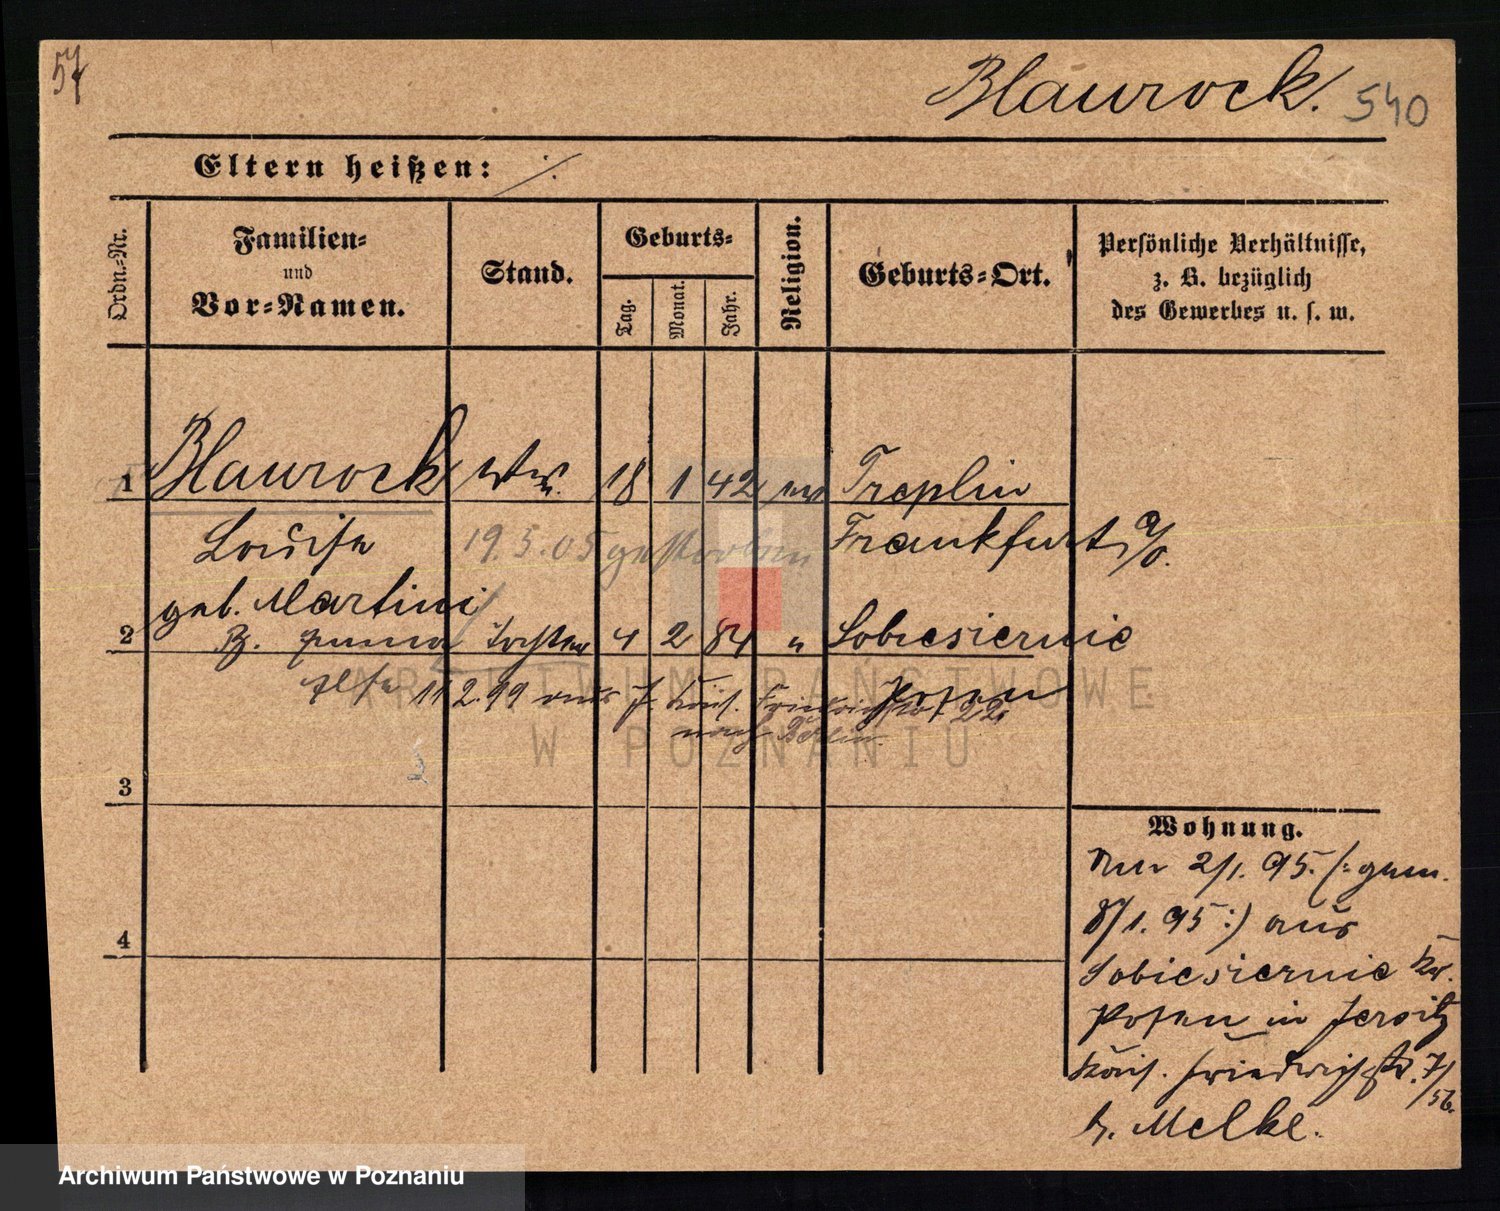 57
Blaurock. 540
Eltern heißen: ./.
Ordn.-Nr.
Familien-
und
Vor-Namen.
Stand.
Geburts-
Tag.
Monat.
Jahr.
Religion.
Geburts-Ort.
Persönliche Verhältnisse,
z. B. bezüglich
des Gewerbes u. s. w.
1 Blaurock Ww. 18 1 42 ev Treplin
Louise 19.5.05 gestorben Frankfurt a/O.
geb. Martini
2 B. Emma Tochter 4 2 84 " Sobiesiernie
Else 11.2.99 aus J. Kais. Friedrichstr. 22
Posen
nach Berlin.
3
4
Wohnung.
Am 2/1. 95. (: gem.
8/1. 95 :) aus
Sobiesiernie Kr.
Posen in Jersitz
Kais. Friedrichstr. 7/
56.
b. Melke.
ARCHIWUM PAŃSTWOWE
W POZNANIU
Archiwum Państwowe w Poznaniu